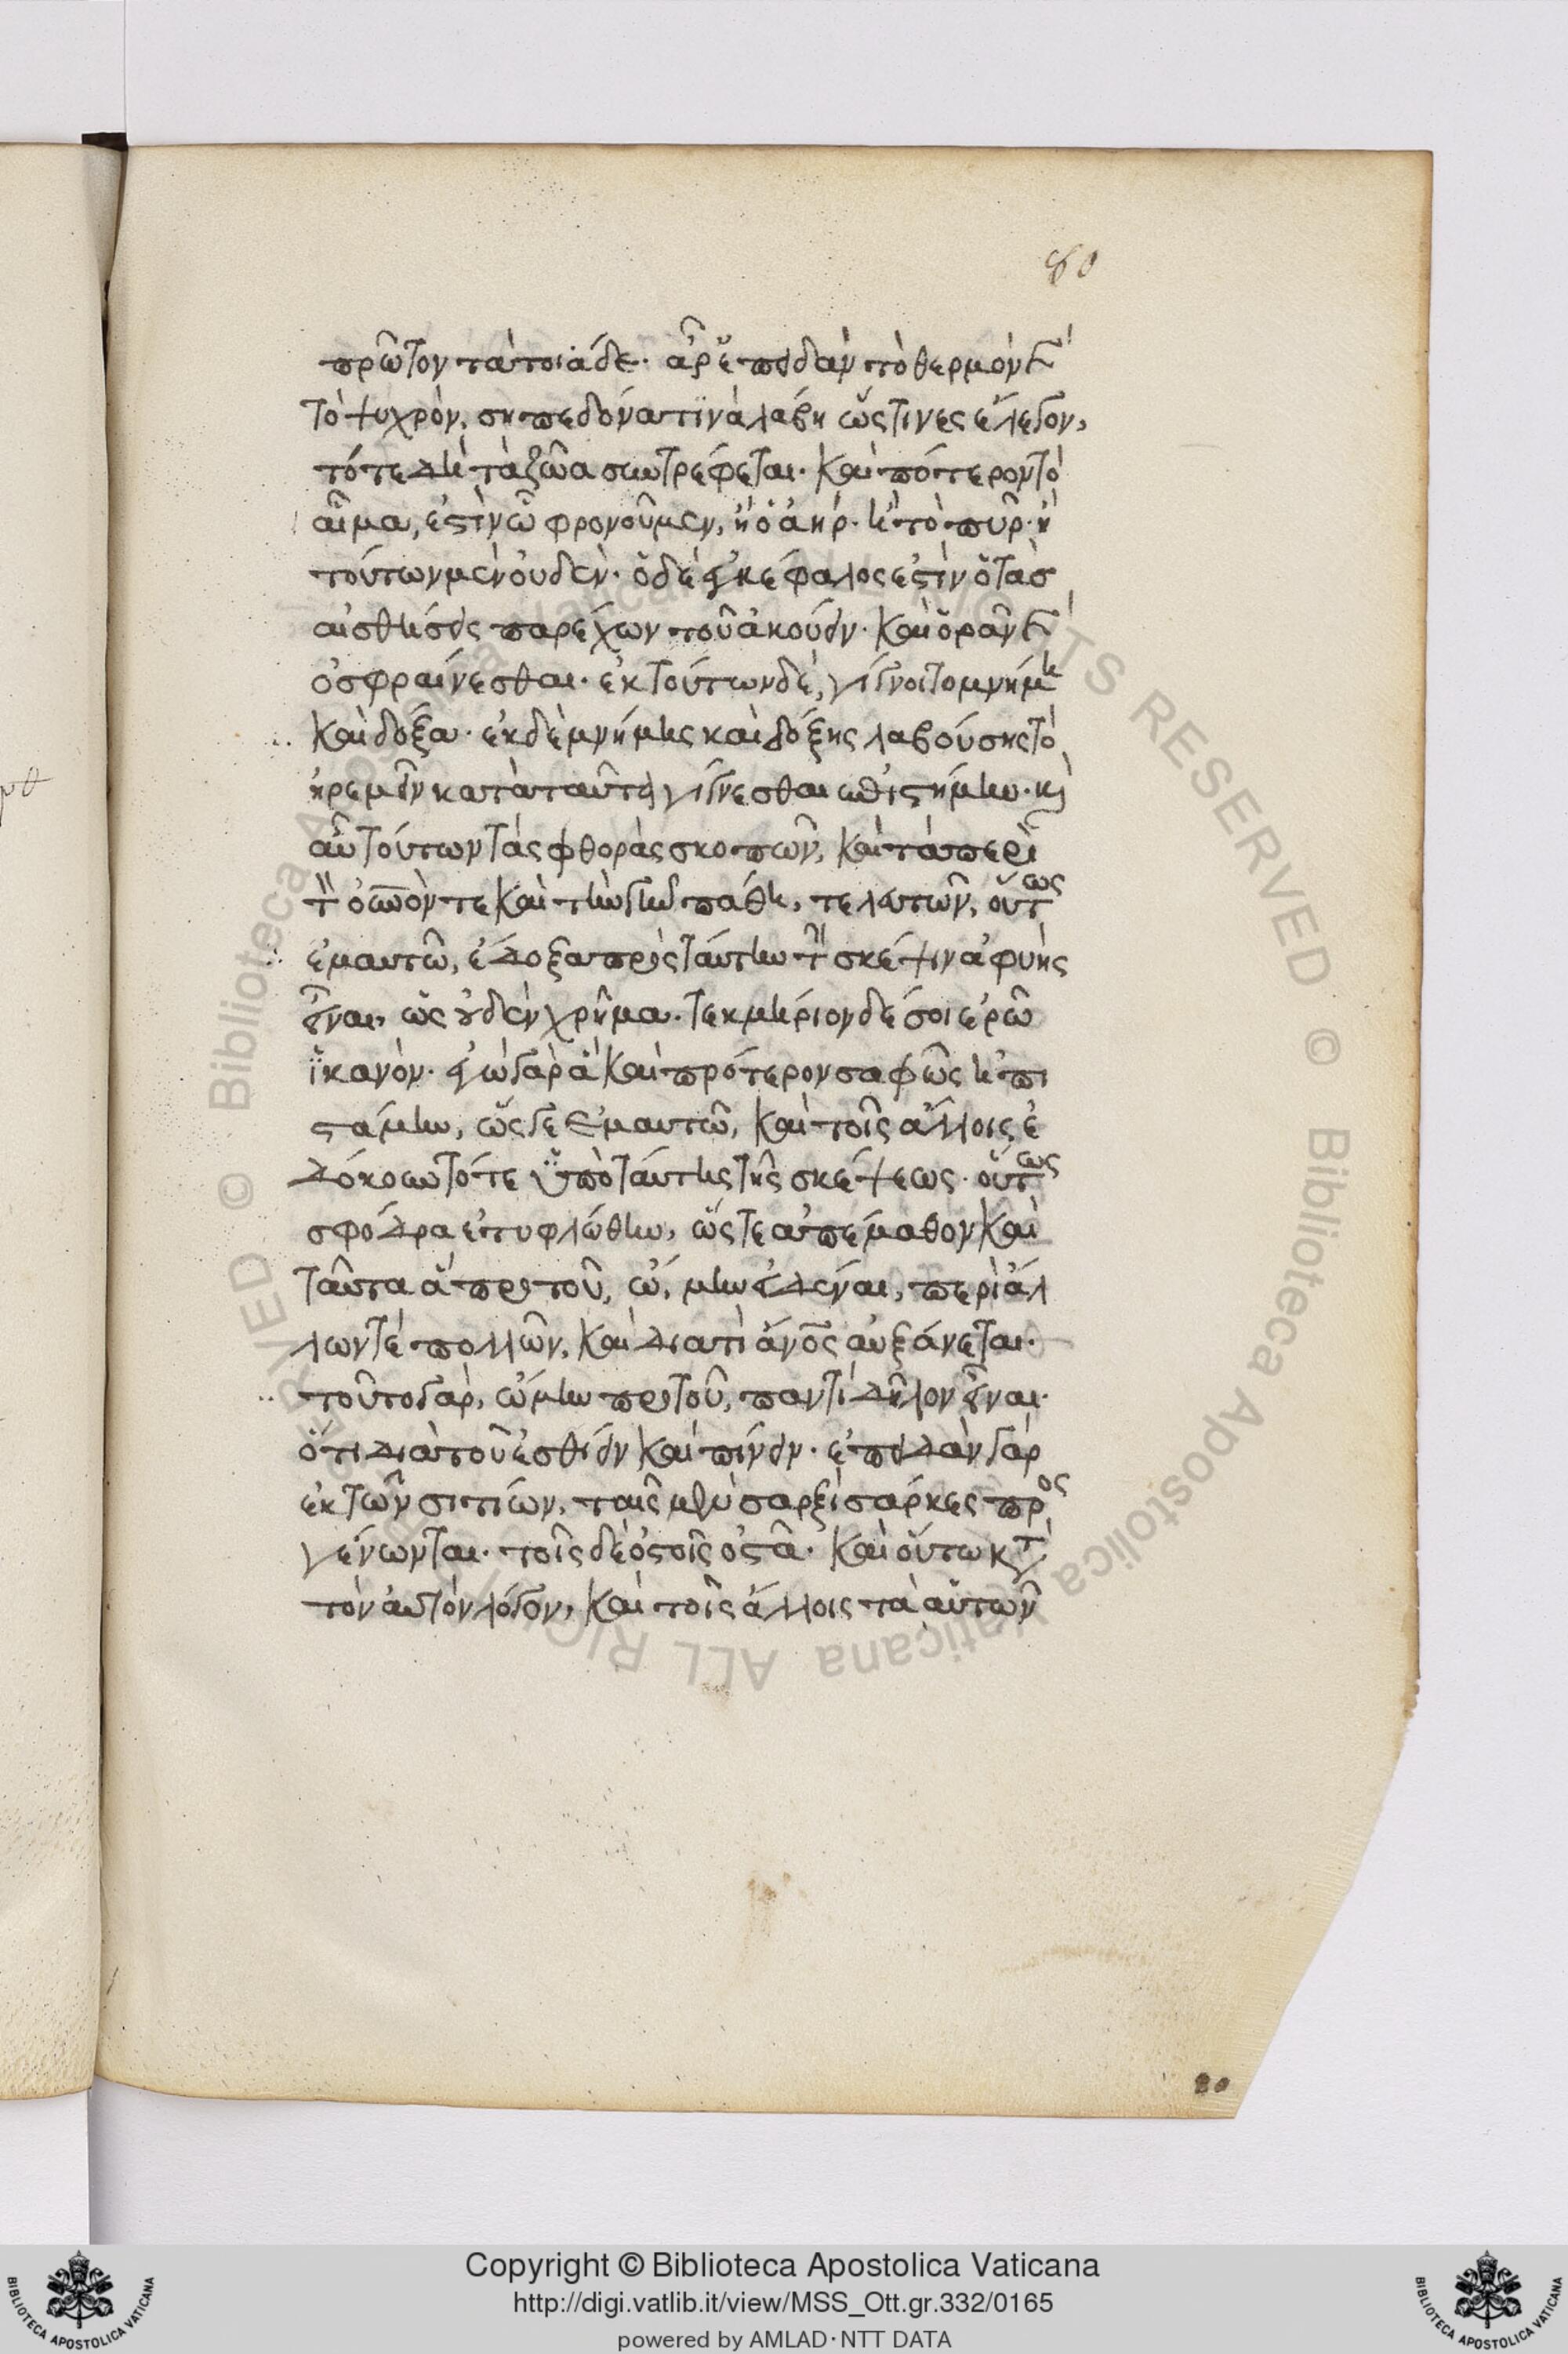 80
πρῶτον τὰ τοιάδε· ἆρ' ἐπειδὰν τὸ θερμὸν καὶ
τὸ ψυχρὸν, σηπεδόνα τινὰ λάβη ὥς τινες ἔλεγον,
τότε δὴ τὰ ζῶα συντρέφεται· καὶ πότερον τὸ
αἷμα, ἐστὶν ὧ φρονοῦμεν, ἢ ὁ ἀήρ· ἢ τὸ πῦρ· ἢ
τούτων μὲν οὐδέν· ὁ δὲ ἐγκέφαλος ἐστὶν ὁ τὰσ
αἰσθήσεις παρέχων τοῦ ἀκούειν· καὶ ὁρᾶν καὶ
ὀσφραίνεσθαι· ἐκ τούτων δὲ, γίγνοιτο μνήμη
καὶ δόξα· ἐκ δὲ μνήμης καὶ δόξης λαβούσης τὸ
ἠρεμεῖν κατὰ ταῦτα γίγνεσθαι ἐπιστήμην· καὶ
αὖ τούτων τὰς φθορὰς σκοπῶν, καὶ τὰ περὶ
τὸν οὐνόν τε καὶ τὴν γῆν πάθη, τελευτῶν, οὕτως
ἐμαυτῶ, ἔδοξα πρὸς ταύτην τὴν σκέψιν ἀφυὴς
εἶναι, ὡς οὐδὲν χρῆμα· τεκμήριον δέ σοι ἐρῶ
ἱκανὸν· ἐγὼ γὰρ ἃ καὶ πρότερον σαφῶς ἠπι
στάμην, ὥς γε ἐμαυτῶ, καὶ τοῖς ἄλλοις ἐ
δόκουν τότε ὑπὸ ταύτης τῆς σκέψεως· οὕτως
σφόδρα ἐτυφλώθην, ὥστε ἀπέμαθον καὶ
ταῦτα ἃ πρὸ τοῦ, ὤμην εἰδέναι, περὶ ἄλ
λων τὲ πολλῶν, καὶ διατὶ ἄνος αὐξάνεται·
τοῦτο γὰρ, ὤμην πρὸ τοῦ, παντὶ δῆλον εἶναι·
ὅτι διὰ τοῦ ἐσθίειν καὶ πίνειν· ἐπειδὰν γὰρ
ἐκ τῶν σιτίων, ταῖς μὲν σαρξὶ σάρκες προς
γένωνται· τοῖς δὲ ὀστοῖς ὀστᾶ· καὶ οὕτω κατὰ
τὸν αὐτὸν λόγον, καὶ τοῖς ἄλλοις τὰ αὑτῶν
20
Copyright © Biblioteca Apostolica Vaticana
http://digi.vatlib.it/view/MSS_Ott.gr.332/0165
powered by AMLAD·NTT DATA